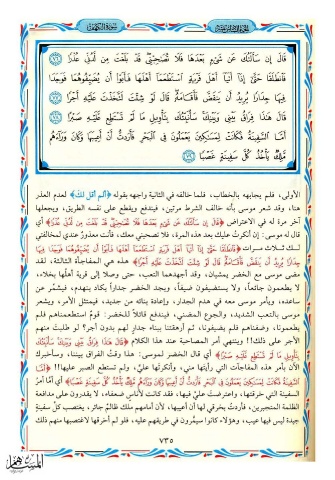 سورة الكهف
قَالَ إِن سَأَلْتُكَ عَن شَيْءٍ بَعْدَهَا فَلَا تُصَاحِبْنِي قَدْ بَلَغْتَ مِن لَّدُنِّي عُذْرًا
فَانطَلَقَا حَتَّى إِذَا أَتَيَا أَهْلَ قَرْيَةٍ اسْتَطْعَمَا أَهْلَهَا فَأَبَوْا أَن يُضَيِّفُوهُمَا فَوَجَدَا
فِيهَا جِدَارًا يُرِيدُ أَن يَنقَضَّ فَأَقَامَهُ قَالَ لَوْ شِئْتَ لَتَّخَذْتَ عَلَيْهِ أَجْرًا
قَالَ هَذَا فِرَاقُ بَيْنِي وَبَيْنِكَ سَأُنَبِّئُكَ بِتَأْوِيلِ مَا لَمْ تَسْتَطِع عَّلَيْهِ صَبْرًا
أَمَّا السَّفِينَةُ فَكَانَتْ لِمَسَاكِينَ يَعْمَلُونَ فِي الْبَحْرِ فَأَرَدتُّ أَنْ أَعِيبَهَا وَكَانَ وَرَاءَهُم
مَّلِكٌ يَأْخُذُ كُلَّ سَفِينَةٍ غَصْبًا
الأولى، فلم يجابهه بالخطاب، فلما خالفه في الثانية واجهه بقوله ﴿ألم أقل لك﴾ لعدم العذر
هنا، وقد شعر موسى بأنه خالف الشرط مرتين، فيندفع ويقطع على نفسه الطريق، ويجعلها
آخر مرة له في الاعتراض ﴿قَالَ إِن سَأَلْتُكَ عَن شَيْءٍ بَعْدَهَا فَلَا تُصَاحِبْنِي قَدْ بَلَغْتَ مِن لَّدُنِّي عُذْرًا﴾ أي
قال له موسى: إن أنكرتُ عليك بعد هذه المرة، فلا تصحبني معك، فأنت معذورٌ عندي لمخالفتي
لك ثلاث مرات ﴿فَانطَلَقَا حَتَّى إِذَا أَتَيَا أَهْلَ قَرْيَةٍ اسْتَطْعَمَا أَهْلَهَا فَأَبَوْا أَن يُضَيِّفُوهُمَا فَوَجَدَا فِيهَا
جِدَارًا يُرِيدُ أَن يَنقَضَّ فَأَقَامَهُ قَالَ لَوْ شِئْتَ لَتَّخَذْتَ عَلَيْهِ أَجْرًا﴾ هذه هي المفاجأة الثالثة، لقد
مضى موسى مع الخضر يمشيان، وقد أجهدهما التعب، حتى وصلا إلى قرية أهلها بخلاء،
لا يطعمون جائعاً، ولا يستضيفون ضيفاً، ويجد الخضر جداراً يكاد ينهدم، فيشمّر عن
ساعده، ويأمر موسى معه في هدم الجدار، وإعادة بنائه من جديد، فيمتثل الأمر، ويشعر
موسى بالتعب الشديد، والجوع المضني، فيندفع قائلاً للخضر: قومٌ استطعمناهم فلم
يطعمونا، وضفناهم فلم يضيفونا، ثم أرهقتنا ببناء جدار لهم بدون أجر؟ لو طلبت منهم
الأجر على ذلك!! وينتهي أمر المصاحبة عند هذا الكلام ﴿قَالَ هَذَا فِرَاقُ بَيْنِي وَبَيْنِكَ سَأُنَبِّئُكَ
بِتَأْوِيلِ مَا لَمْ تَسْتَطِع عَّلَيْهِ صَبْرًا﴾ أي قال الخضر لموسى: هذا وقت الفراق بيننا، وسأخبرك
الآن بأمر هذه المفاجآت التي رأيتها مني، وأنكرتها عليّ، ولم تستطع الصبر عليها!! ﴿أَمَّا
السَّفِينَةُ فَكَانَتْ لِمَسَاكِينَ يَعْمَلُونَ فِي الْبَحْرِ فَأَرَدتُّ أَنْ أَعِيبَهَا وَكَانَ وَرَاءَهُم مَّلِكٌ يَأْخُذُ كُلَّ سَفِينَةٍ غَصْبًا﴾ أي أمّا أمرُ
السفينة التي خرقتها، واعترضت عليّ فيها، فقد كانت لأناس ضعفاء، لا يقدرون على مدافعة
الظلمة المتجبرين، فأردتُ بخرقي لها أن أعيبها، لأن أمامهم ملك ظالم جائر، يغتصب كلّ سفينةٍ
جيدة ليس فيها عيب، وهؤلاء كانوا سيمرّون في طريقهم عليه، فلو لم أخرقها لاغتصبها منهم ذلك
٧٣٥